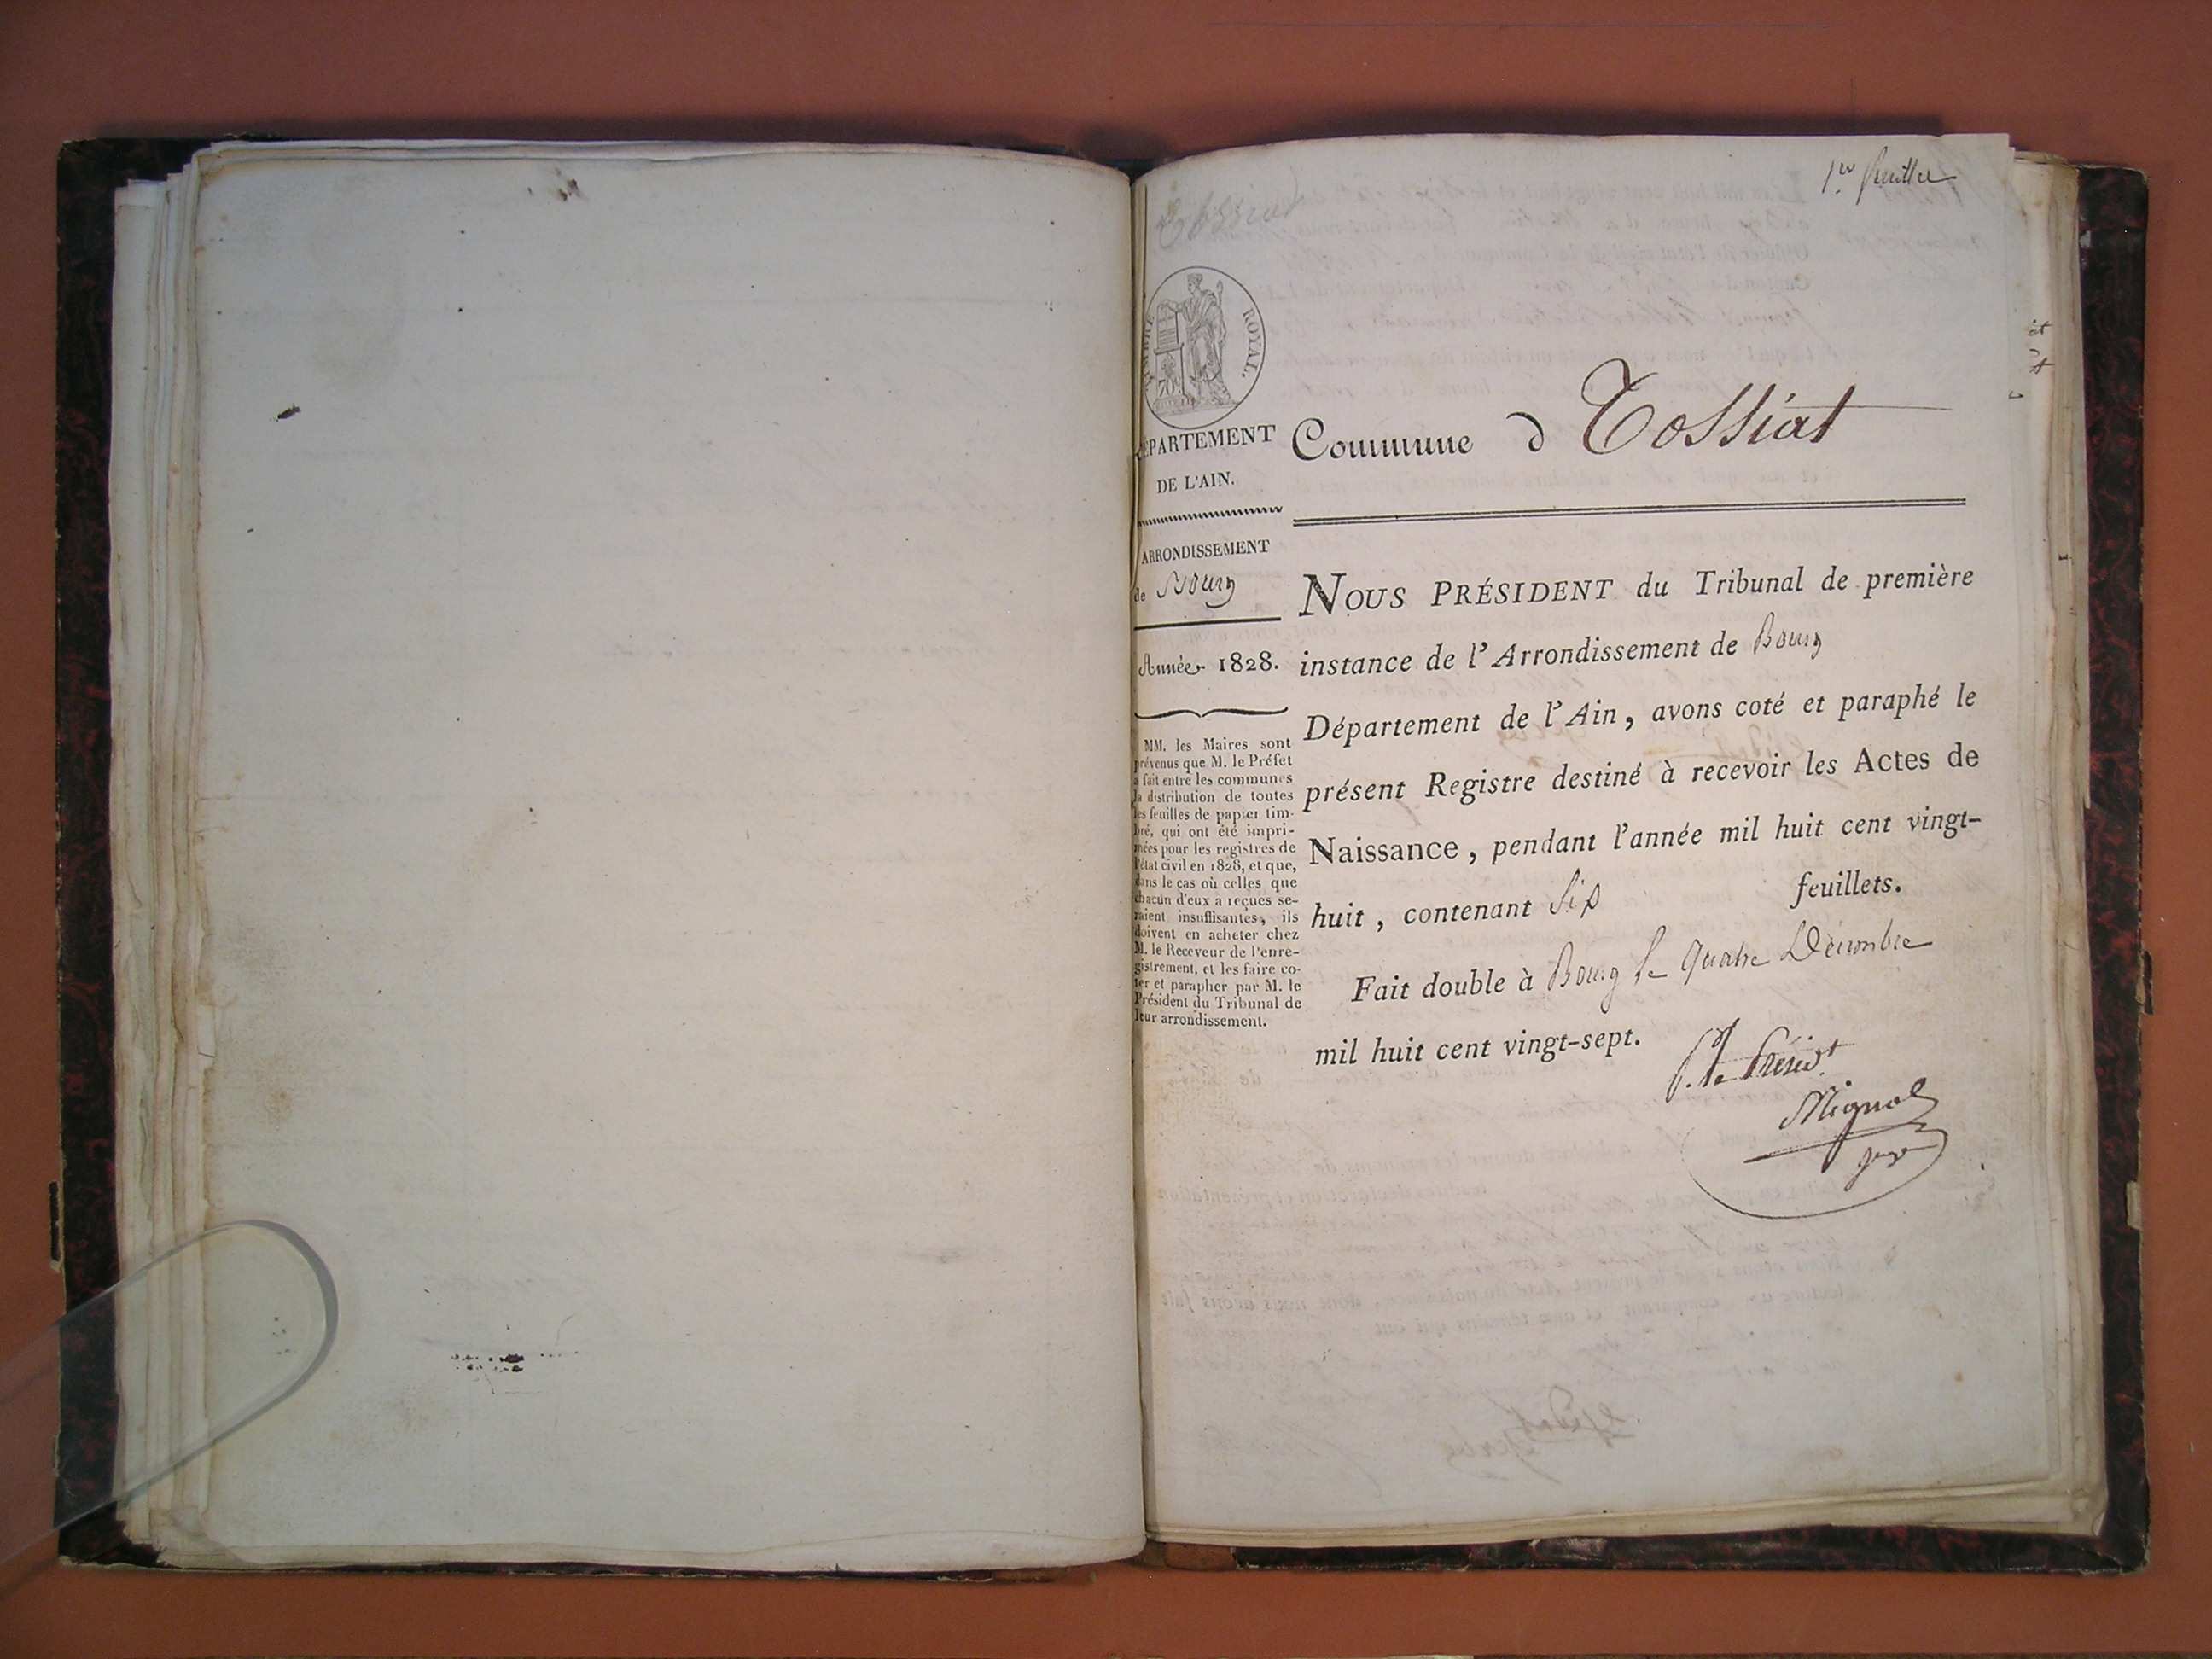 1er feuillet
Tossiat
TIMBRE ROYAL.
DÉPARTEMENT
DE L'AIN.
ARRONDISSEMENT
de Bourg
Année 1828.
MM. les Maires sont
prévenus que M. le Préfet
a fait entre les communes
la distribution de toutes
les feuilles de papier tim-
bré, qui ont été impri-
mées pour les registres de
l'état civil en 1828, et que,
dans le cas où celles que
chacun d'eux a reçues se-
raient insuffisantes, ils
doivent en acheter chez
M. le Receveur de l'enre-
gistrement, et les faire co-
ter et parapher par M. le
Président du Tribunal de
leur arrondissement.
Commune d Tossiat
NOUS PRÉSIDENT du Tribunal de première
instance de l'Arrondissement de Bourg
Département de l'Ain, avons coté et paraphé le
présent Registre destiné à recevoir les Actes de
Naissance, pendant l'année mil huit cent vingt-
huit, contenant Six feuillets.
Fait double à Bourg le quatre Décembre
mil huit cent vingt-sept.
P. le Présidt
Mignot
juge